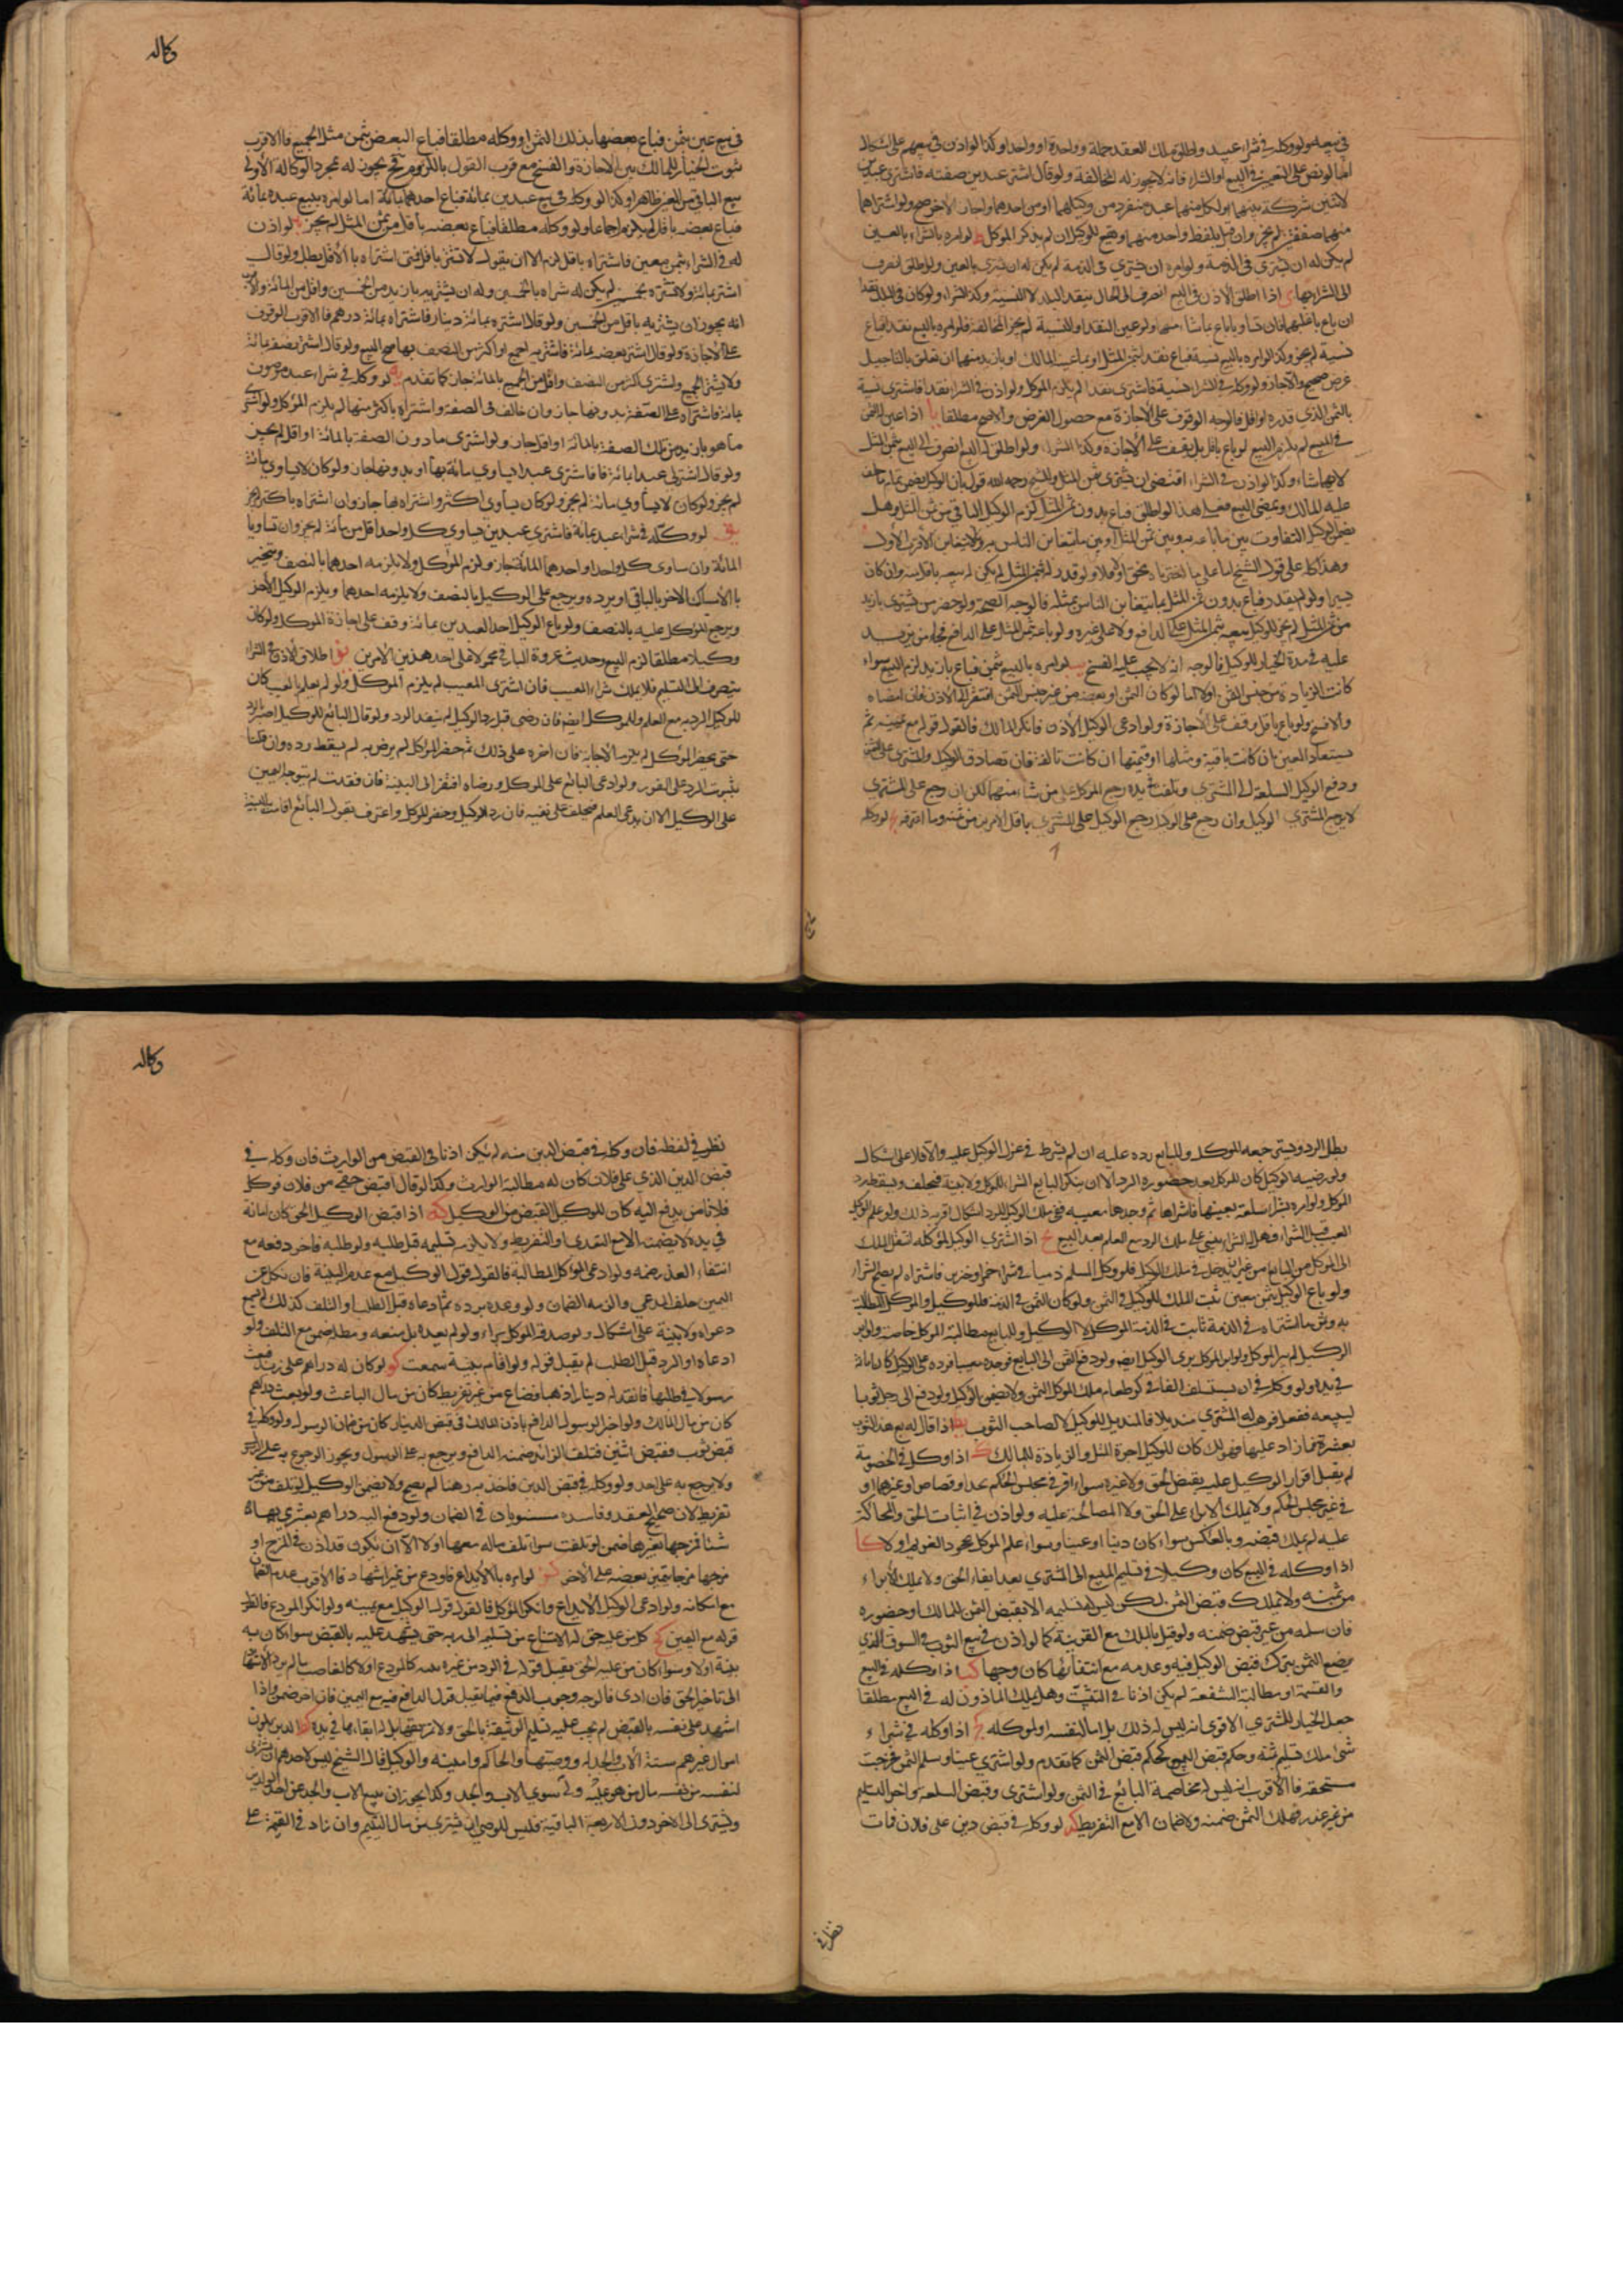 في بيعه ولو وكله في شراء عبيد واطلق ملك العقد جملة وواحدة او واحدا وكذا لو اذن في بيعهم على اشكال
اما لو نص على التعيين في البيع او الشراء فانه لا يجوز له المخالفة ولو قال اشتر عبدين صفقة فاشترى عبدين
لاثنين شركة بينهما او لكل منهما عبد منفرد من وكيلهما او من احدهما واجاز الاخر صح ولو اشتراهما
منهما صفقتين لم يجز وان قيل بلفظ واحد منهما ويقع للوكيل ان لم يذكر الموكل ط لو امره بالشراء بالعين
لم يكن له ان يشتري في الذمة ولو امره ان يشتري في الذمة لم يكن له ان يشتري بالعين ولو اطلق انصرف
الى الشراء بهما ي اذا اطلق الاذن في البيع انصرف الى الحال بنقد البلد لا النسيئة وكذا الشراء ولو كان في البلد نقدا
ان باع باغلبهما فان تساويا باع بما شاء منهما ولو عين النقد او النسيئة لم يجز المخالفة فلو امره بالبيع نقدا فباع
نسيئة لم يجز وكذا لو امره بالبيع نسيئة فباع نقدا بثمن المثل او بما عينه المالك او بازيد منهما ان تعلق بالتاجيل
غرض صحيح والا جاز ولو وكله في الشراء بنسيئة فاشترى نقدا لم يلزم الموكل ولو اذن في الشراء نقدا فاشترى نسية
بالثمن الذي قدره او اقل فالوجه الوقوف على الاجازة مع حصول الغرض والا صح مطلقا يا اذا عين الثمن
في البيع لم يلزم البيع لو باع باقل بل يقف على الاجازة وكذا الشراء ولو اطلق له البيع انصرف الى البيع بثمن المثل
لا بما شاء وكذا لو اذن في الشراء اقتضى ان يشتري بثمن المثل وللشيخ رحمه الله قول بان الوكيل يضمن تمام ما حلف
عليه المالك ويمضى البيع فعلى هذا لو اطلق فباع بدون ثمن المثل لزم الوكيل الباقي من ثمن المثل وهل
يضمن الوكيل التفاوت بين ما باعه به وبين ثمن المثل او بين ما يتغابن الناس به وما لا يتغابن الاقرب الاول
وهذا كله على قول الشيخ اما على ما اخترناه
من ثمن المثل لم يجز للوكيل بيعه بثمن المثل
عليه في مدة الخيار للوكيل فالوجه انه لا يجب عليه الفسخ يب لو امره بالبيع بثمن فباع بازيد لزم البيع سواء
كانت الزيادة من جنس الثمن اولا اما لو كان الثمن او بعضه من غير جنس الثمن افتقر الى الاذن فان امضاه
والا فسخ ولو باع باقل وقف على الاجازة ولو ادعى الوكيل الاذن فانكر المالك فالقول قوله مع يمينه ثم
يستعاد العين ان كانت باقية ومثلها او قيمتها ان كانت تالفة فان تصادق الوكيل والمشتري على الثمن
ودفع الوكيل السلعة الى المشتري وتلفت في يده رجع الموكل على من شاء منهما لكن ان رجع على المشتري
لا يرجع المشتري على الوكيل وان رجع على الوكيل رجع الوكيل على المشتري باقل الامرين من ثمنه وما اغرمه يج لو وكله
وكاله
في بيع عين بثمن فباع بعضها بذلك الثمن او وكله مطلقا فباع البعض بثمن مثل الجميع فالاقرب
ثبوت الخيار للمالك بين الاجازة والفسخ مع قرب القول باللزوم فح يجوز له بمجرد الوكالة الاولى
بيع الباقي من العين ظاهرا وكذا لو وكله في بيع عبدين بمائة فباع احدهما بمائة اما لو امره ببيع عبده بمائة
فباع بعضه باقل لم يلزم اجماعا ولو وكله مطلقا فباع بعضه باقل من ثمن المثل لم يجز يد لو اذن
له في الشراء بثمن معين فاشتراه باقل لزم الا ان يقول لا تشتر باقل فمتى اشتراه بالاقل بطل ولو قال
اشتر بمائة ولا تشتره بخمسين لم يكن له شراه بالخمسين وله ان يشتريه بازيد من الخمسين واقل من المائة والاقرب
انه يجوز ان يشتريه باقل من الخمسين ولو قال اشتره بمائة دينار فاشتراه بمائة درهم فالاقرب الوقوف
على الاجازة ولو قال اشتر بعضه بمائة فاشترى به الجميع او اكثر من النصف بها صح البيع ولو قال اشتر نصفه بمائة
ولا يشتر الجميع واشترى اكثر من النصف واقل من الجميع بالمائة جاز كما تقدم يه لو وكله في شراء عبد موصوف
بمائة فاشتراه على الصفة بدونها جاز وان خالف في الصفة واشتراه باكثر منها لم يلزم الموكل ولو اشترى
ما هو بازيد من تلك الصفة بالمائة او اقل جاز ولو اشترى ما دون الصفة بالمائة او اقل لم يجز
ولو قال اشتر لي عبدا بمائة فاشترى عبدا يساوي مائة بها او بدونها جاز ولو كان لا يساوي مائة
لم يجز ولو كان لا يساوي مائة لم يجز ولو كان يساوي اكثر واشتراه بها جاز وان اشتراه باكثر لم يجز
يو لو وكله في شراء عبد بمائة فاشترى عبدين يساوي كل واحد اقل من مائة لم يجز وان تساويا
المائة وان ساوى كل واحد او احدهما المائة جاز ولزم الموكل ولا يلزمه احدهما بالنصف ويتخير
بالامساك الاخر بالباقي او يرده ويرجع على الوكيل بالنصف ولا يلزمه احدهما ويلزم الوكيل الاخر
ويرجع الموكل عليه بالنصف ولو باع الوكيل احد العبدين بمائة وقف على اجازة الموكل ولو كان
وكيلا مطلقا لزم البيع وحديث عروة البارقي محمول على احد هذين الامرين يز اطلاق الاذن في الشراء
ينصرف الى السليم فلا يملك شراء المعيب فان اشترى المعيب لم يلزم الموكل ولو لم يعلم بالعيب كان
للوكيل الرد به مع العلم وللموكل ايضا فان رضي قبل رد الوكيل لم ينفذ الرد ولو قال البائع للوكيل اصبر بالرد
حتى يحضر الموكل لم يلزمه الاجابة فان اخره على ذلك ثم حضر الموكل لم يرض به لم يسقط رده وان قلنا
بثبوت الرد على الفور ولو ادعى البائع علم الموكل ورضاه افتقر الى البينة فان فقدت لم يتوجه اليمين
على الوكيل الا ان يدعى العلم فيحلف على نفيه فان رد الوكيل وحضر الموكل واعترف بقول البائع او قامت البينة
بطل الرد ويسترجعه الموكل وللبايع رده عليه ان لم يشترط في عزل الوكيل علمه والا فلا على اشكال
ولو رضيه الوكيل كان للموكل بعد حضوره الرد الا ان ينكر البايع الشراء للموكل ولا بينة فيحلف ويسقط رد
الموكل ولو امره بشراء سلعة بعينها فاشتراها ثم وجدها معيبة ففي ملك الوكيل للرد اشكال اقربه ذلك ولو علم الوكيل
العيب قبل الشراء فهل له الشراء ينبني على ملك الرد مع العلم بعد البيع يح اذا اشترى الوكيل لموكله انتقل الملك
الى الموكل من البايع من غير ان يدخل في ملك الوكيل فلو وكل المسلم ذميا في شراء خمر او خنزير فاشتراه لم يصح الشراء
ولو باع الوكيل بثمن معين ثبت الملك للموكل في الثمن ولو كان الثمن في الذمة فللوكيل والموكل المطالبة
به وثمن ما اشتراه في الذمة ثابت في الذمة الموكل لا الوكيل وللبايع مطالبة الموكل خاصة ولو ابرء
الوكيل لم يبرء الموكل ولو ابرء الموكل برئ الوكيل ايضا ولو دفع الثمن الى البايع فوجده معيبا فرده على الوكيل كان امانة
في يده ولو وكله في ان يستسلف الفا في كر طعام ملك الموكل الثمن ولا يضمن الوكيل ولو دفع الى رجل ثوبا
ليبيعه ففعل فوهب له المشتري منديلا فالمنديل للوكيل لا لصاحب الثوب يط اذا قال له بع هذا الثوب
بعشرة فما زاد عليها فهو لك كان للوكيل اجرة المثل والزيادة للمالك ك اذا وكل في الخصومة
لم يقبل اقرار الوكيل عليه بقبض الحق ولا غيره سواء اقر في مجلس الحكم بحد او قصاص او غيرهما او
في غير مجلس الحكم ولا يملك الابراء على الحق ولا المصالحة عليه ولو اذن في اثبات الحق والمحاكمة
عليه لم يملك قبضه وبالعكس سواء كان دينا او عينا وسواء علم الموكل بجحود الغريم او لا كا
اذا وكله في البيع كان وكيلا في تسليم المبيع الى المشتري بعد ايفاء الحق ولا يملك الابراء
من ثمنه ولا يملك قبض الثمن لكن ليس له تسليمه الا بقبض الثمن للمالك او حضوره
فان سلمه من غير قبض ضمنه ولو قيل بالملك مع القرينة كما لو اذن في بيع الثوب في السوق الذي
يضيع الثمن بترك قبض الوكيل فيه وعدمه مع انتفائها كان وجها كب اذا وكله في البيع
والقسمة او مطالبة الشفعة لم يكن اذنا في التثبت وهل يملك الماذون له في البيع مطلقا
جعل الخيار للمشتري الاقوى انه ليس له ذلك بل له اما لنفسه او لموكله كج اذا وكله في شراء
شيء ملك تسليم ثمنه وحكم قبض المبيع كحكم قبض الثمن كما تقدم ولو اشترى عبدا وسلم الثمن فخرجت
مستحقه فالاقرب انه ليس له مخاصمة البائع في الثمن ولو اشترى وقبض السلعة واخر التسليم
من غير عذر فهلك الثمن ضمنه ولا ضمان الا مع التفريط كد لو وكله في قبض دين على فلان فمات
نظر في
وكاله
نظر في لفظه فان وكله في قبض الدين منه لم يكن اذنا في القبض من الوارث فان وكله في
قبض الدين الذي على فلان كان له مطالبة الوارث وكذا لو قال اقبض حقي من فلان فوكل
فلانا من يدفع اليه كان للوكيل القبض من الوكيل كه اذا قبض الوكيل الحق كان امانة
في يده لا يضمن الا مع التعدي او التفريط ولا يلزمه تسليمه قبل طلبه ولو طلبه فاخر دفعه مع
انتفاء العذر ضمنه ولو ادعى الموكل المطالبة فالقول قول الوكيل مع عدم البينة فان نكل عن
اليمين حلف المدعي والزمه الضمان ولو وعده برده ثم ادعاه قبل الطلب او التلف كذلك لم تسمع
دعواه ولا بينة على اشكال ولو صدقه الموكل برء ولو لم يعده بل منعه ومطله ضمن مع التلف ولو
ادعاه او الرد قبل الطلب لم يقبل قوله ولو اقام بينة سمعت كو لو كان له دراهم على زيد فبعث
رسولا في طلبها فانفذ له دينارا ذهبا فضاع من غير تفريط كان من مال الباعث ولو بعث دراهم
كان من مال المالك ولو اخبر الرسول الدافع باذن المالك في قبض الدينار كان من ضمان الرسول ولو وكله في
قبض ثوب فقبض اثنين فتلف الزائد ضمنه الدافع ويرجع به على الرسول ويجوز الرجوع به على الرسول
ولا يرجع به على احد ولو وكله في قبض الدين فاخذ به رهنا لم يصح ولا يضمن الوكيل لو تلف من غير
تفريط لان صحيح العقد وفاسده مستويان في الضمان ولو دفع اليه دراهم يشتري بها
شيئا فمزجها بغيرها ضمن لو تلفت سواء تلف ماله معها او لا الا ان يكون قد اذن في المزج او
مزجها بما يتميز بعضه على الاخر كز لو امره بالايداع فاودع من غير اشهاد فالاقرب عدم الضمان
مع امكانه ولو ادعى الوكيل الايداع وانكر الموكل فالقول قول الوكيل مع يمينه ولو انكر المودع فالقول
قوله مع اليمين كح كل من عليه حق له الامتناع من تسليمه الى ربه حتى يشهد عليه بالقبض سواء كان به
بينة او لا وسواء كان من عليه الحق يقبل قوله في الرد من غيره بينة كالمودع او لا كالغاصب ما لم يرد الاشهاد
الى تاخير الحق فان ادى فالوجه وجوب الدفع فيما يقبل قول الدافع فيه مع اليمين فان اخر ضمن واذا
اشهد على نفسه بالقبض لم يجب عليه تسليم الوثيقة بالحق ولا تمزيقها بل له ابقاءها في يده كط الذين يلون
اموال غيرهم ستة الاب والجد له ووصيهما والحاكم وامينه والوكيل قال الشيخ ليس لاحدهم ان يشتري
لنفسه من نفسه مال من هو عليه ولي سوى الاب والجد وكذا يجوز ان يبيع الاب والجد عن احد الولدين
ويشتري الى الاخر دون الاربعة الباقية فليس للوصي ان يشتري من مال اليتيم وان زاد في القيمة على